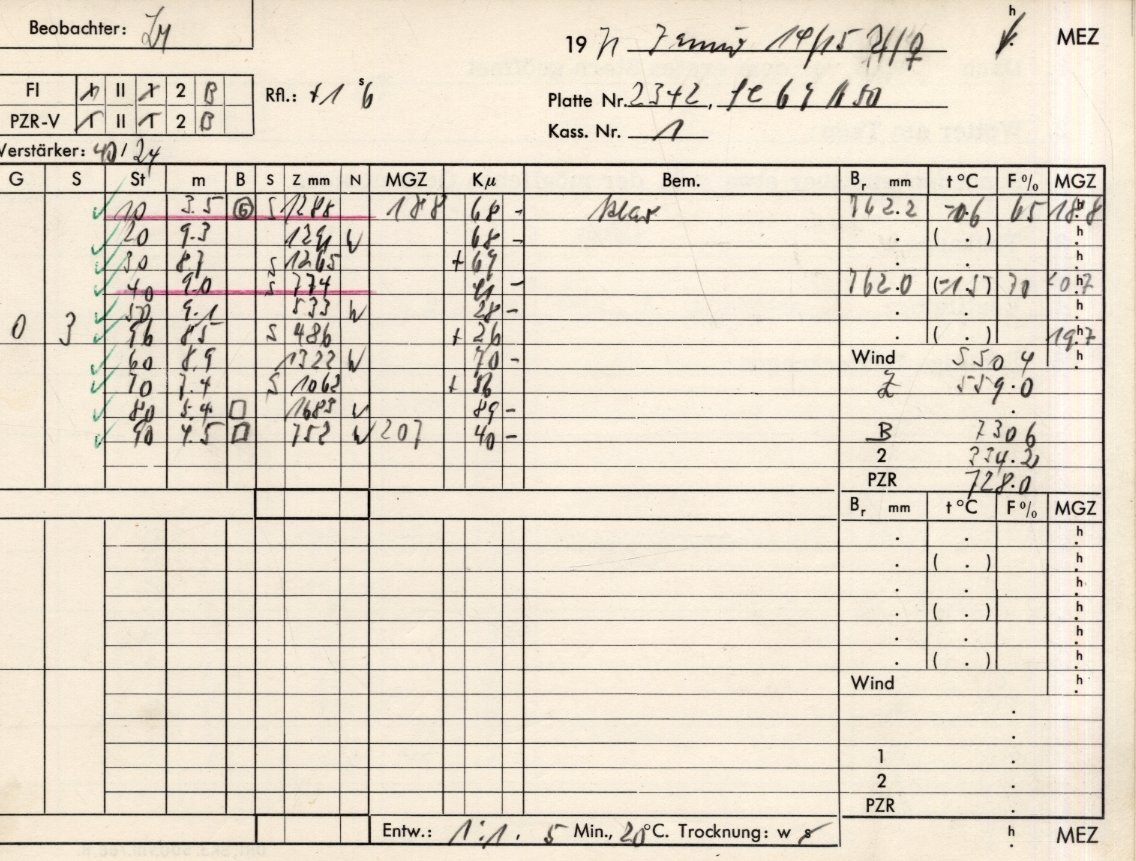 Beobachter:
19 71 Januar 14/15 h MEZ
FI 1 II 1 2 B
Rfl.: +1 s 6
Platte Nr. 2342,
PZR-V 1 II 1 2 B
Kass. Nr. 1
Verstärker: 40/24
G S St m B S Z mm N MGZ Kμ Bem. Br mm t °C F % MGZ
10 3.5 G S 1288 188 68 - klar 762.2 -0.6 65 18h.8
20 9.3 1291 N 68 - . ( . ) h.
30 8.7 S 1265 + 69 . . h.
40 9.0 S 774 41 - 762.0 (-1.5) 70
50 9.1 533 N 28 - . . h.
0 3 96 8.5 S 486 + 26 . ( . ) 19h.7
60 8.9 1322 N 70 - Wind 550 4 h.
70 7.4 S 1062 + 56 Z 559.0
80 5.4 □ 1683 N 89 -
90 4.5 □ 752 N 207 40 - B 730 6
2 334.2
PZR 728.0
Br mm t °C F % MGZ
. . h.
. ( . ) h.
. . h.
. ( . ) h.
. . h.
. ( . ) h.
Wind h.
1 .
2 .
PZR .
Entw.: 1:1. 5 Min., 20°C. Trocknung: w s h. MEZ